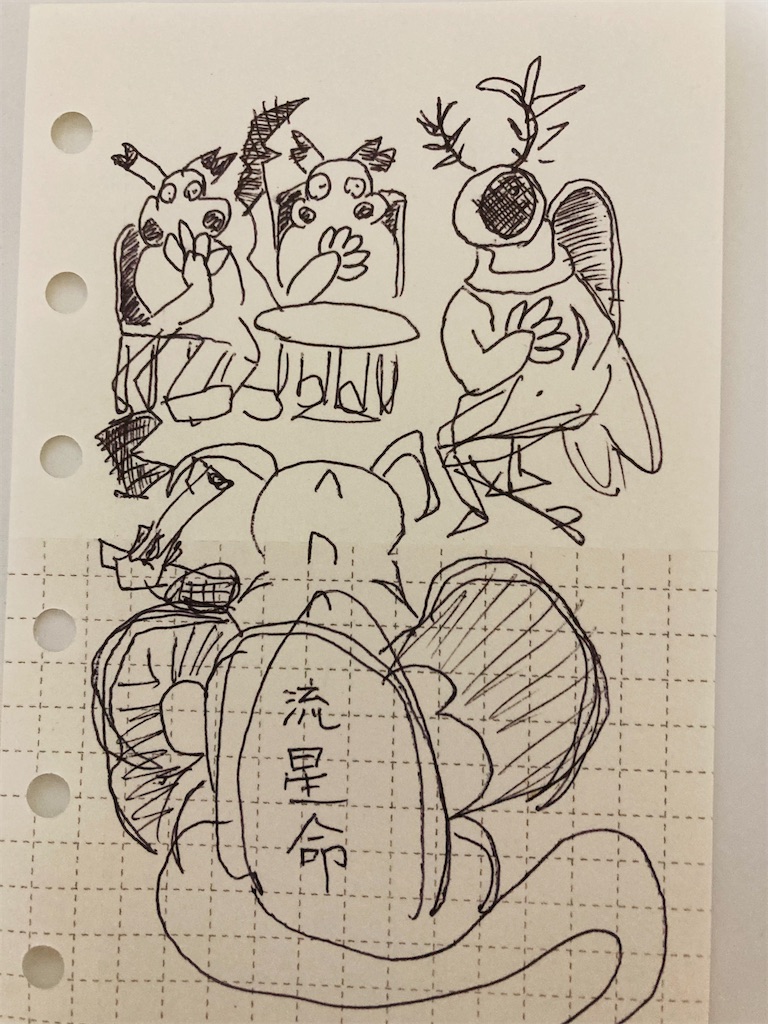 流
星
命